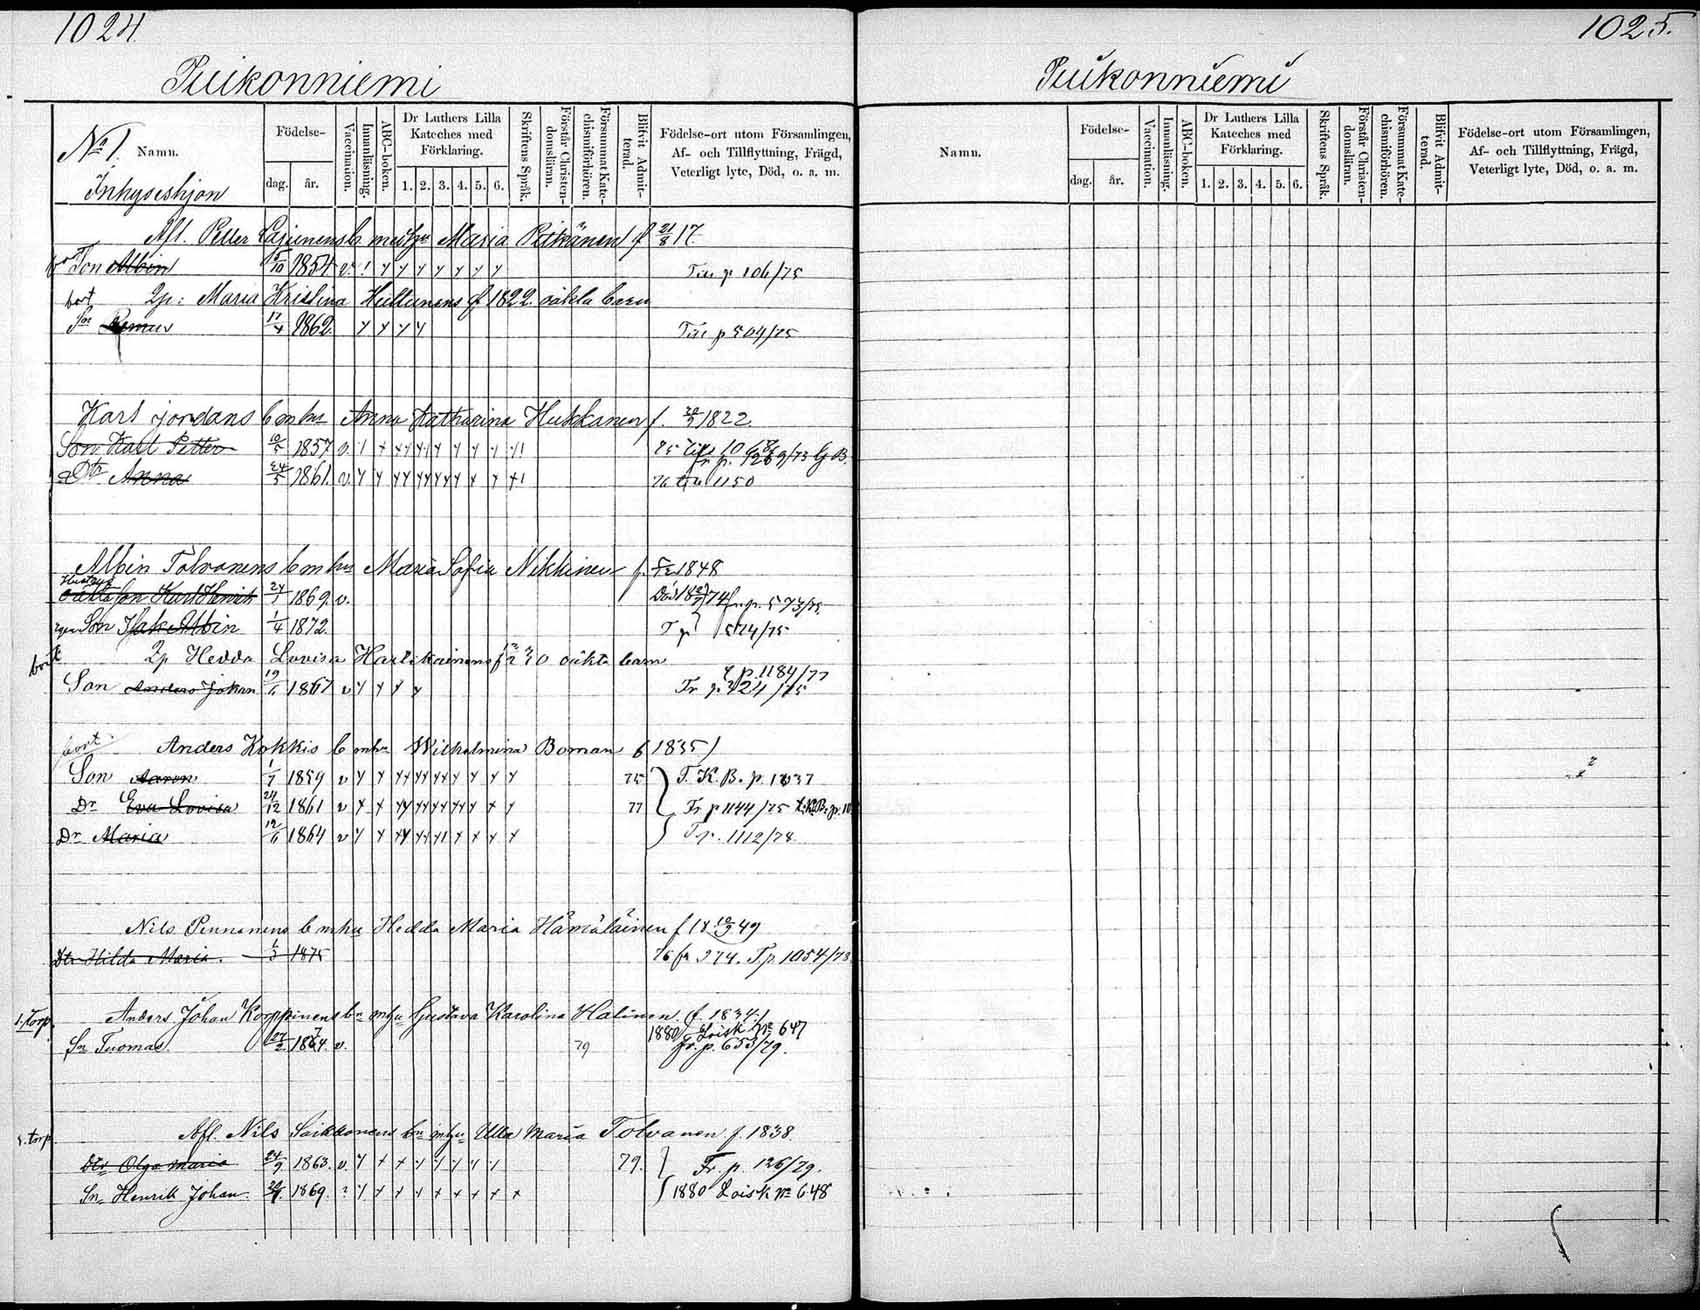 1024
Puikonniemi
No 1.
Namn.
Inhyseshjon
Födelse-
dag.
år.
Vaccination.
Innanläsning.
ABC-boken.
Dr Luthers Lilla
Kateches med
Förklaring.
1. 2. 3. 4. 5. 6.
Skriftens Språk.
Förstår Christen-
domsläran.
Försummat Kate-
chismiförhören.
Blifvit Admit-
terad.
Födelse-ort utom Församlingen,
Af- och Tillflyttning, Frägd,
Veterligt lyte, Död, o. a. m.
Afl. Petter b. med hu Maria Pitkänen f 21/8 17.
Son Albin 1854 v
p 106/75
bort 2p: Maria Kristina Hultunens f 1822 oäkta barn
Sn 17/4 1862
p 504/75
Karl Jordans b m hu Anna Katharina Hukkanen f. 1822.
Son Karl Petter 1857 v.
Dtr Anna 24/5 1861 v
76 1150
Albin Tolvanens b m hu Maria Sofia Nikkinen f. 1848
Hustrus
oäkta son Karl Henrik 24/1 1869. v.
p. 573/75
Son Isak Albin 1/4 1872.
574/75
bort 2p Hedda Lovisa Hartikainens oäkta barn
Son Anders Johan 19/6 1867 v
p. 1184/77
Fr p. 424/75
bort. Anders Kokkis b m hu Wilhelmina Boman f 1835
Son Aaron 1/7 1859 v 75 T. K. B. p. 1037
Dr Eva Lovisa 24/12 1861 v 77 Fr p 1144/75
Dr Maria 12/6 1864 v T p. 1112/78
Nils Pennanens b m hu Hedda Maria Hämäläinen f 18 10/3 49
Dtr Hilda Maria. 1/3 1875 76 fr 974. T p. 1054/78
1. torp. Anders Johan Korppinens bn m hu Gustava Karolina Halinen. f. 1834.
1880 Loisk No 647
Sn Tuomas. 1864. v. 79 fr. p. 653/79.
2. torp Afl. Nils Saikkonens bn m hu Ulla Maria Tolvanen f. 1838.
Dtr Olga Maria 24/9 1863. v. 79. Fr. p. 126/79.
Sn Henrik Johan. 1869. 1880 Loisk No 648
1025.
Puikonniemi
Namn.
Födelse-
dag.
år.
Vaccination.
Innanläsning.
ABC-boken.
Dr Luthers Lilla
Kateches med
Förklaring.
1. 2. 3. 4. 5. 6.
Skriftens Språk.
Förstår Christen-
domsläran.
Försummat Kate-
chismiförhören.
Blifvit Admit-
terad.
Födelse-ort utom Församlingen,
Af- och Tillflyttning, Frägd,
Veterligt lyte, Död, o. a. m.